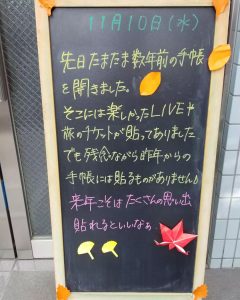 11月10日(水)
先日たまたま数年前の手帳
を開きました。
そこには楽しかったLIVEや
旅のチケットが貼ってありました
でも残念ながら昨年からの
手帳には貼るものがありません♪
来年こそはたくさんの思い出
貼れるといいなぁ